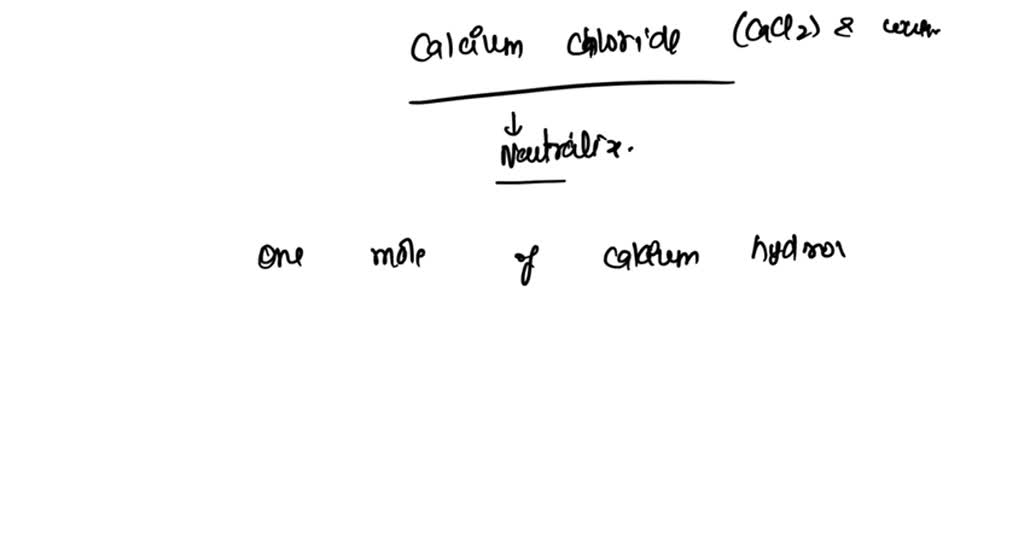 Calcium chloride (CaCl2) &
↓
Neutralix.
one mole of calcium hydrox